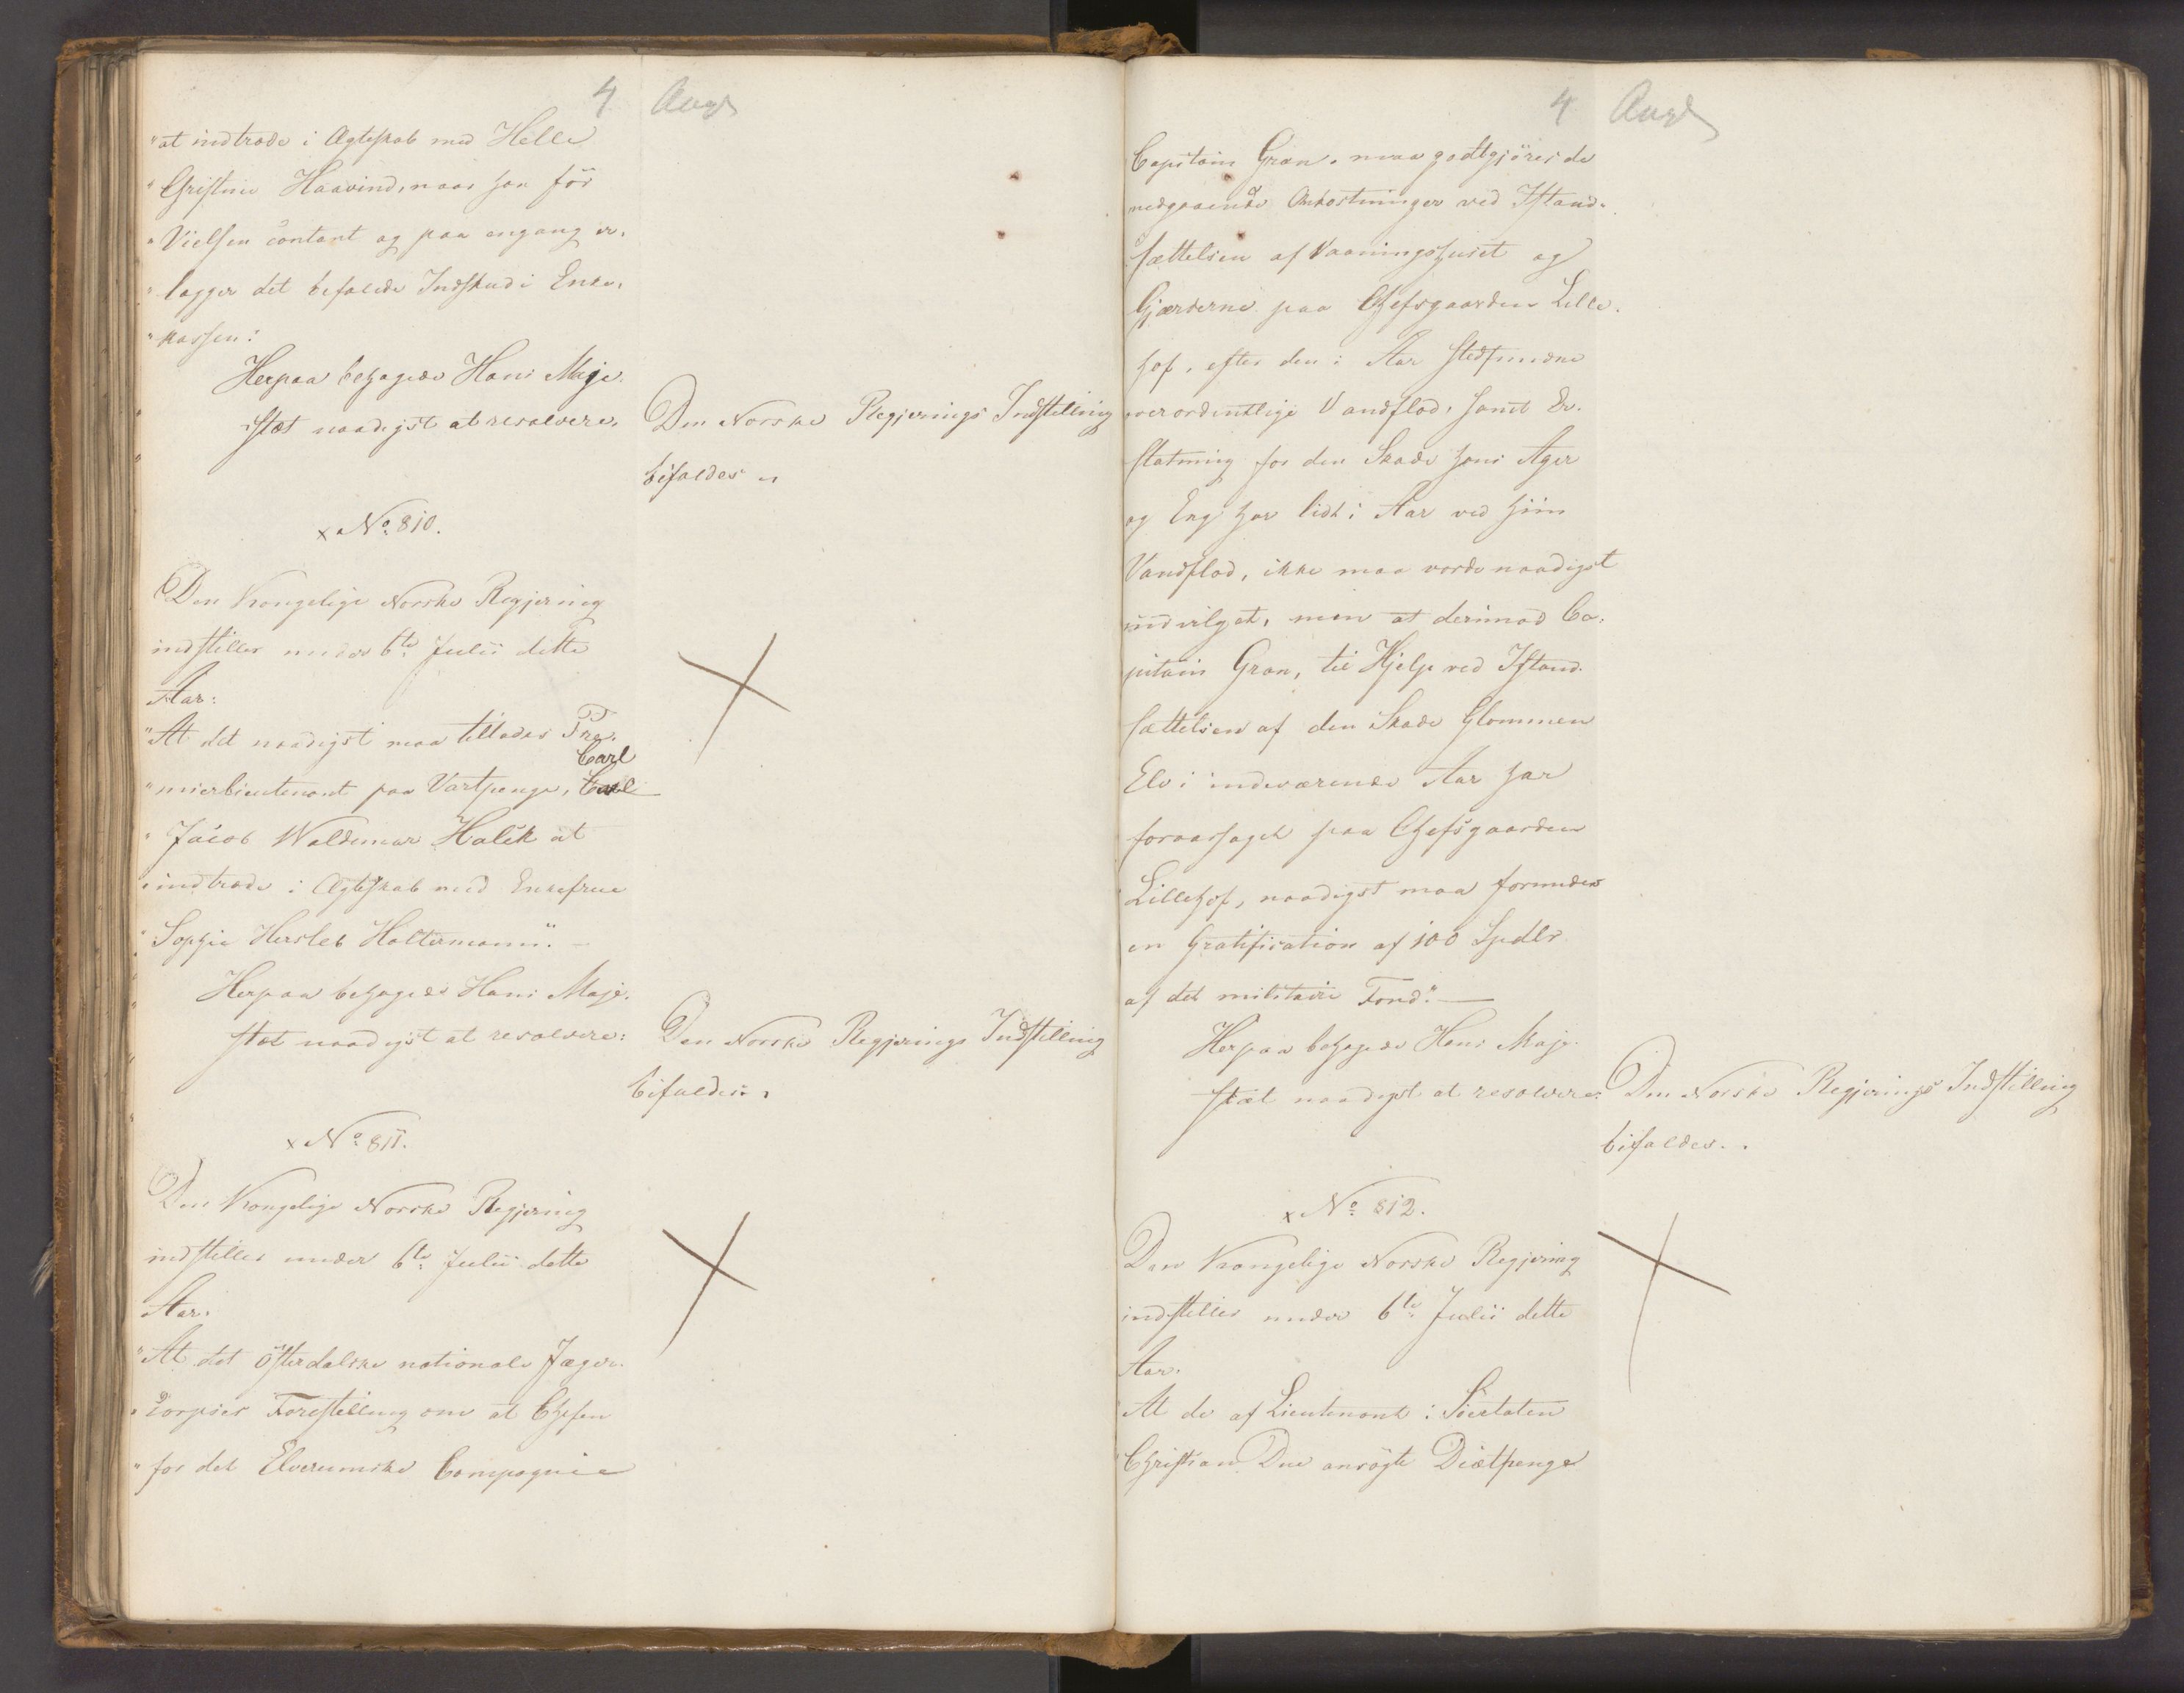 4 Augt
"at indtræde i Ægteskab med Helle
"Christine Haavind, naar han før
"Vielsen contant og paa engang er-
"lægger det befalede Indskud i Enke-
"kassen:
Herpaa behagede Hans Maje-
stæt naadigst at resolvere.
Den Norske Regjerings Indstilling
bifaldes.
x No. 810.
Den Kongelige Norske Regjering
indstiller under 6te Julii dette
Aar:
"At det naadigst maa tillades Pre-
Carl
"mierlieutenant paa Vartpenge, Carl
"Jacob Waldemar Halck at
"indtræde i Ægteskab med Enkefrue
"Sophie Hersleb Holtermann". -
Herpaa behagede Hans Maje-
stæt naadigst at resolvere:
Den Norske Regjerings Indstilling
bifaldes.
x No. 811.
Den Kongelige Norske Regjering
indstiller under 6te Julii dette
Aar.
"At det Østerdalske nationale Jæger-
"Corpses Forestilling om at Chefen
"for det Elverumske Compagnie
4 Augt
Capitain Gran, maa godtgjøres de
medgaaende Omkostninger ved Istand-
sættelsen af Vaaningshuset og
Gjærderne paa Chefsgaarden Lille-
hof, efter den i Aar stedfundne
overordentlige Vandflod, samt Er-
statning for den Skade hans Ager
og Eng har lidt i Aar ved hiin
Vandflod, ikke maa vorde naadigst
indvilget, men at derimod Ca-
pitain Gran, til Hjelp ved Istand-
sættelsen af den Skade Glommen
Elv i indeværende Aar har
foraarsaget paa Chefsgaarden
Lillehof, naadigst maa forundes
en Gratification af 100 Spdlr
af det militaire Fond". -
Herpaa behagede Hans Maje-
stæt naadigst at resolvere:
Den Norske Regjerings Indstilling
bifaldes.
x No. 812.
Den Kongelige Norske Regjering
indstiller under 6te Julii dette
Aar.
"At de af Lieutenant i Søeetaten
"Christian Due ansøgte Diætpenge